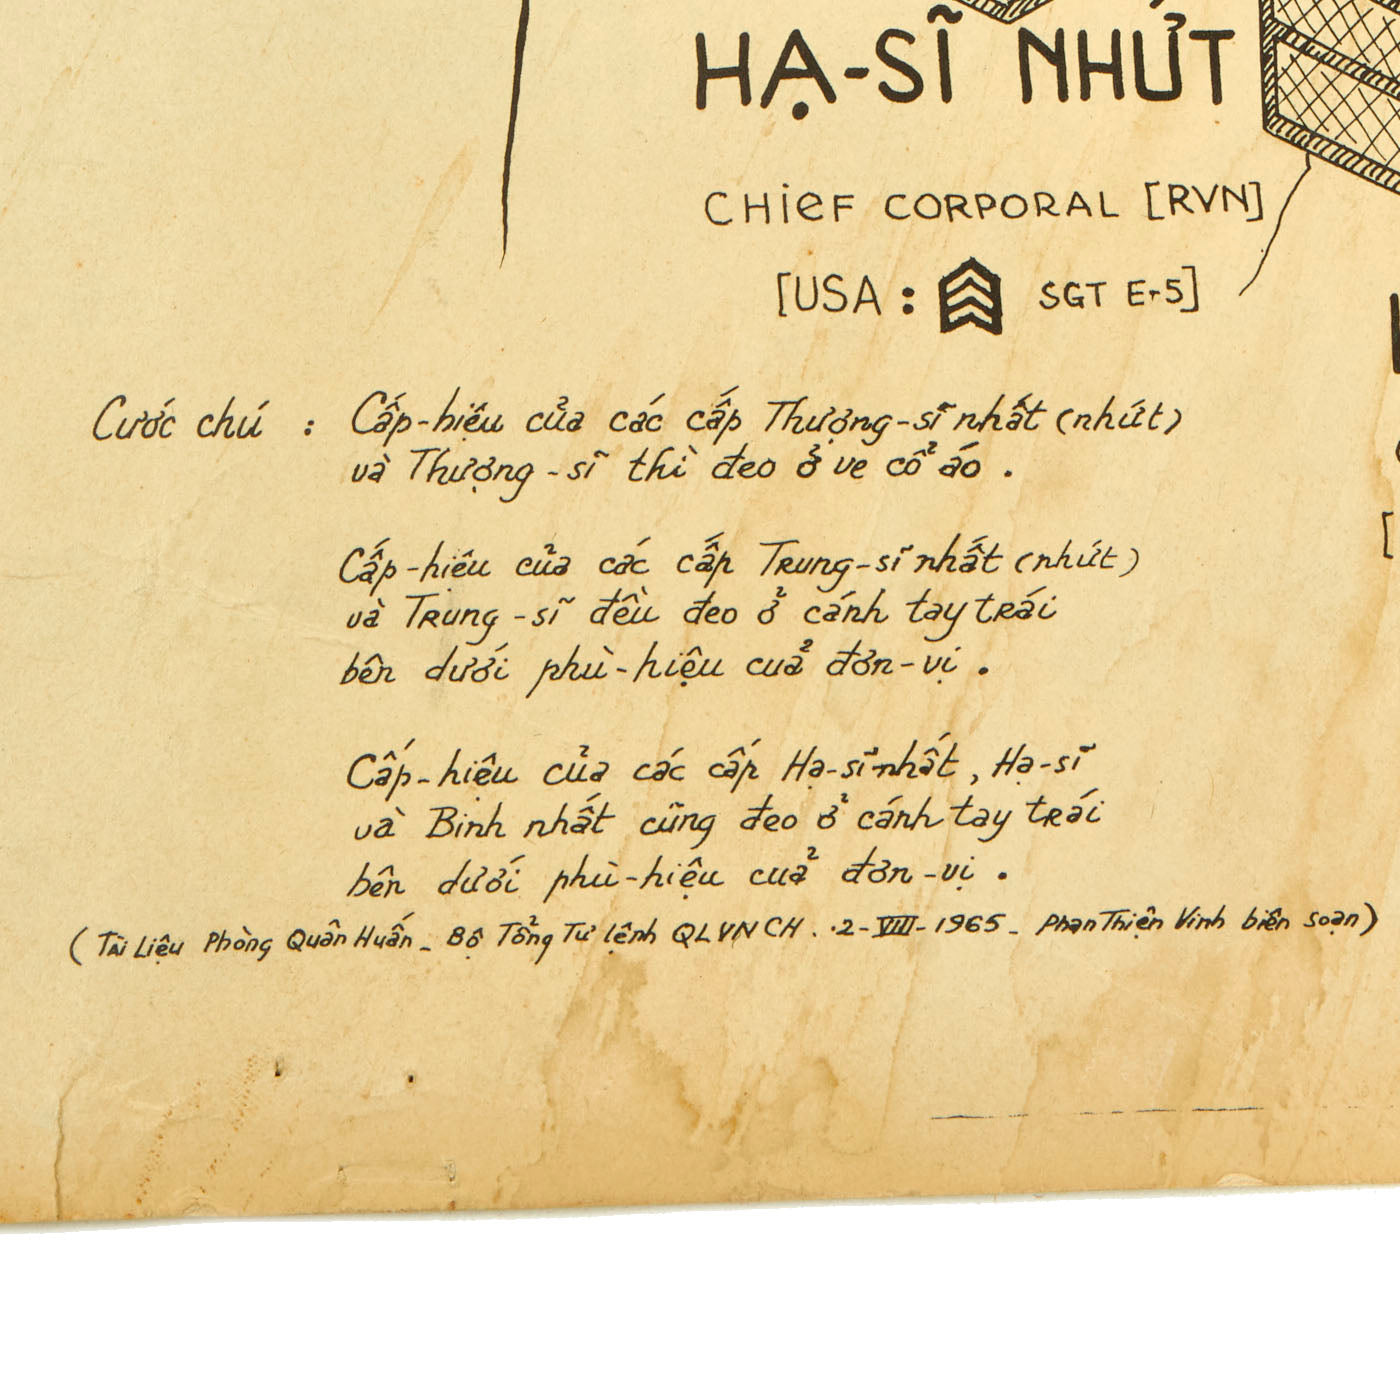 HẠ-SĨ NHỨT
CHieF CORPORAL [RVN]
[USA : SGT E-5]
Cước chú : Cấp-hiệu của các cấp Thượng-sĩ nhất (nhứt)
và Thượng-sĩ thì đeo ở ve cổ áo .
Cấp-hiệu của các cấp Trung-sĩ nhất (nhứt)
và Trung-sĩ đều đeo ở cánh tay trái
bên dưới phù-hiệu của đơn-vị .
Cấp-hiệu của các cấp Hạ-sĩ nhất, Hạ-sĩ
và Binh nhất cũng đeo ở cánh tay trái
bên dưới phù-hiệu của đơn-vị .
(Tài Liệu Phòng Quân Huấn - Bộ Tổng Tư lệnh QLVNCH . 2-VIII-1965 - Phan Thiện Vinh biên soạn)